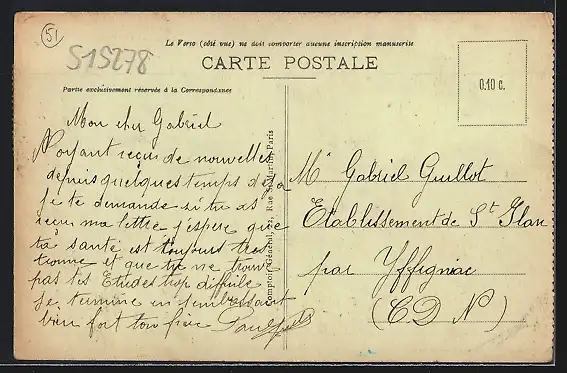 51
S15278
Le Verso (côté vue) ne doit comporter aucune inscription manuscrite
CARTE POSTALE
Partie exclusivement réservée à la Correspondance
0.10 c.
Mon cher Gabriel
N'oyant reçus de nouvelles
depuis quelques temps de
je te demande si tu as
reçus ma lettre j'espère que
ta santé est toujours très
bonne et que tu ne trouve
pas tes Etudes trop difficile
Je termine en t'embrassant
bien fort ton frère Paul
Comptoir Général, Rue St-Martin, Paris
Mr Gabriel Guillot
Etablissement de St Ilan
par Yffigniac
(C D N)